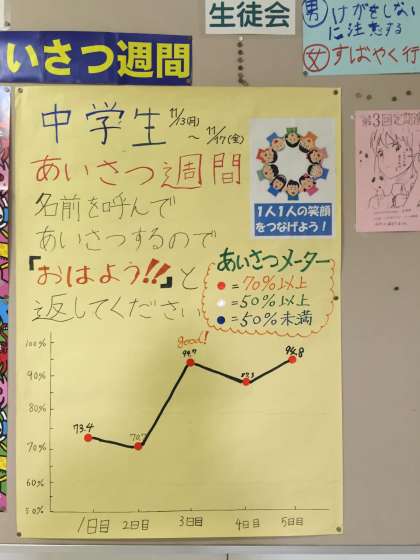 生徒会
男 けがをしない
に注意する
女 すばやく行
あいさつ週間
第3回定期
中学生 11/13(月)
～ 11/17(金)
あいさつ週間
1人1人の笑顔
をつなげよう！
名前を呼んで
あいさつするので
「おはよう!!」と
返してください
あいさつメーター
●=70%以上
=50%以上
●=50%未満
100%
90%
80%
70%
60%
50%
73.4
70.7
good!
94.7
87.3
1日目
2日目
3日目
4日目
5日目